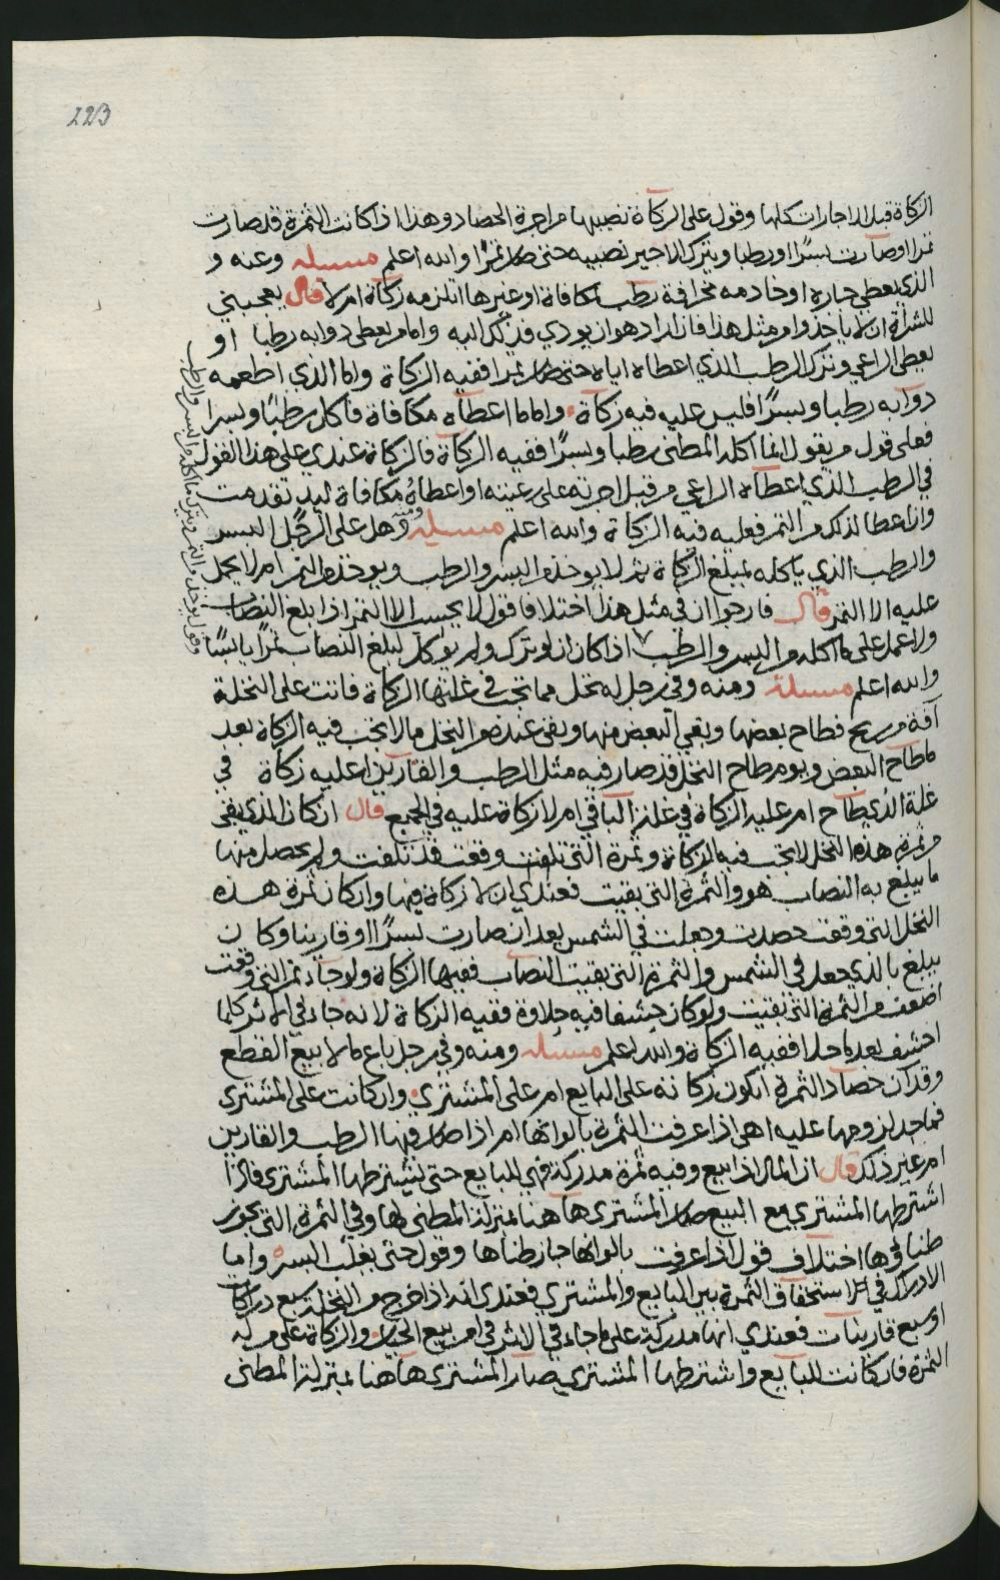 223
الزكاة قبل الاجارات كلها وقول على الزكاة نصيبها من اجرة الحصاد وهذا اذا كانت الثمرة قد صارت
تمرا او صارت بسرًا او رطبا ويترك الاجير نصيبه حتى صار تمرًا والله اعلم مسئلة وعنه و
الذي يعطي جاره او خادمه مخرافة رطب مكافاة او غيرها اتلزمه زكاة ام لا قال يعجبني
للشراة ان لا ياخذوا من مثل هذا فان اراد هو ان يودي فذلك اليه واما من يعطي دوابه رطبا او
يعطي الراعي وترك الرطب الذي اعطاه اياه حتى صار تمرا ففيه الزكاة واما الذي اطعمه
دوابه رطبا وبسرًا فليس عليه فيه زكاة واما ما اعطاه مكافاة فاكل رطبًا وبسرا
فعلى قول من يقول انما اكله المطني رطبا وبسرًا ففيه الزكاة فالزكاة عندي على هذا القول
في الرطب الذي اعطاه الراعي من قبل اجرته على رعيته او اعطاه مكافاة ليد تقدمت
وان اعطا لذلك من التمر فعليه فيه الزكاة والله اعلم مسئلة ومنه وهل على الرجل البسر
والرطب الذي ياكله لمبلغ الزكاة ثم لا يوخذ من البسر والرطب ويوخذ من التمر ام لا يحمل
عليه الا التمر قال فارجوا ان في مثل هذا اختلافا قول لا يحسب الا التمر اذا بلغ النصاب
ولا عمل على ما اكله من البسر والرطب اذا كان ان لو ترك ولم يوكل لبلغ النصاب تمرًا يابسًا
وقول يوخذ من التمر ويترك ما اكله من البسر والرطب
والله اعلم مسئلة ومنه وفي رجل له نخل مما تجب في غلتها الزكاة فاتت على النخلة
آفة من ريح فطاح بعضها وبقي البعض منها وبقى عنده من النخل ما لا تجب فيه الزكاة بعد
ما طاح البعض ويوم طاح النخل قد صار فيه مثل الرطب والقارين اعليه زكاة في
غلة الذي طاح ام عليه الزكاة في غلة الباقي ام لا زكاة عليه في الجميع قال ان كان الذي بقي
من ثمرة هذه النخل لا تجب فيه الزكاة وثمرة التي تلفت وقعت قد تلفت ولم يحصل منها
ما يبلغ به النصاب هو والثمرة التي بقيت فعندي ان لا زكاة فيها وان كان ثمرة هذه
النخل التي وقعت حصدت وجعلت في الشمس بعد ان صارت بسرًا او قارينا وكان
يبلغ بالذي جعل في الشمس والثمرة التي بقيت النصاب ففيها الزكاة ولو جاء تمر التي وقعت
اضعف من الثمرة التي بقيت ولو كان حشفا فيه حلاوة ففيه الزكاة لانه جاء في الاثر كلما
احشف بعد ما حلا ففيه الزكاة والله اعلم مسئلة ومنه وفي رجل باع مالا بيع القطع
وقد ان حصاد الثمرة اتكون زكاته على البايع ام على المشتري وان كانت على المشتري
فما حد لزومها عليه اهي اذا عرفت الثمرة بالوانها ام اذا صار فيها الرطب والقارين
ام غير ذلك قال ان المال اذا بيع وفيه ثمرة مدركة فهي للبايع حتى يشترطها المشتري فاذا
اشترطها المشتري مع البيع صار المشتري هاهنا بمنزلة المطني لها وفي الثمرة التي يجوز
طناؤها اختلاف قول اذا عرفت بالوانها جاز طناها وقول حتى يغلب البسر واما
الادراك في الاستحقاق الثمرة بين البايع والمشتري فعندي انه اذا خرج من النخلة سبع دراكات
او سبع قارينات فعندي انها مدركة على ما جاء في الاثر في امر بيع الخيار والزكاة على من له
الثمرة فان كانت للبايع واشترطها المشتري صار المشتري هاهنا بمنزلة المطني